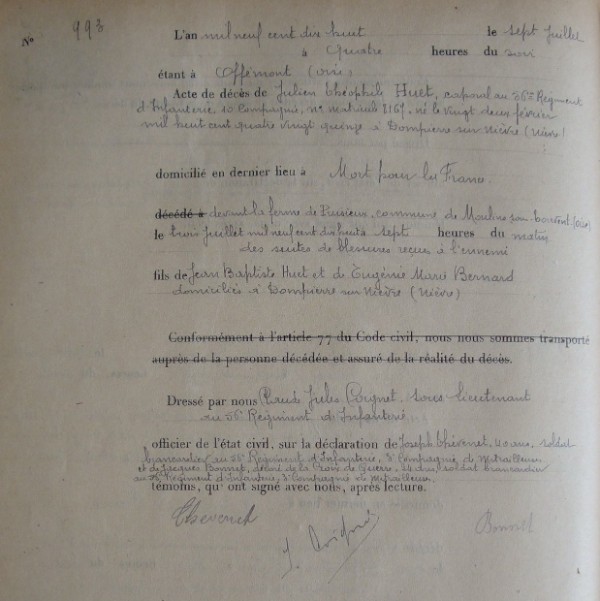 N° 993
L'an mil neuf cent dix huit le sept juillet
à Quatre heures du soir
étant à Offémont (Oise)
Acte de décès de Julien Théophile Huet, caporal au 56me Régiment
d'Infanterie, 10 Compagnie, n° matricule 7167, né le vingt deux février
mil huit cent quatre vingt quinze à Dompierre sur Nièvre (Nièvre)
domicilié en dernier lieu à Mort pour la France
décédé à devant la ferme de Puisieux, commune de Moulin sous Touvent (Oise)
le trois juillet mil neuf cent dix huit à sept heures du matin
des suites de blessures reçues à l'ennemi
fils de Jean Baptiste Huet et de Eugénie Marie Bernard
domiciliés à Dompierre sur Nièvre (Nièvre)
Conformément à l'article 77 du Code civil, nous nous sommes transporté
auprès de la personne décédée et assuré de la réalité du décès.
Dressé par nous Claude Jules sous lieutenant
au 56e Régiment d'Infanterie
officier de l'état civil, sur la déclaration de Joseph Thévenet, 40 ans, soldat
brancardier au 56e Régiment d'Infanterie, 3e Compagnie de Mitrailleuses
et de Jacques Bonnet, décoré de la Croix de Guerre, soldat brancardier
au 56e Régiment d'Infanterie, 3e Compagnie de Mitrailleuses
témoins, qui ont signé avec nous, après lecture.
Thevenet
Bonnet